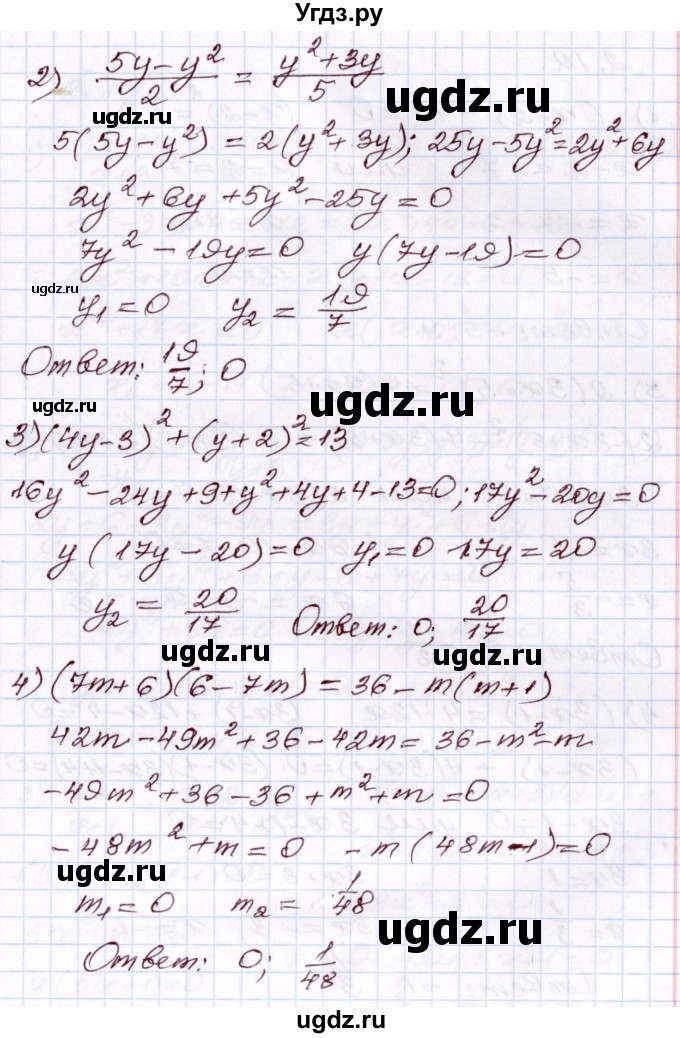 Угдз.ру
2) (5y-y²)/2 = (y²+3y)/5
ugdz.ru ugdz.ru
5(5y-y²) = 2(y²+3y); 25y-5y²=2y²+6y
2y²+6y+5y²-25y=0
7y²-19y=0 y(7y-19)=0
ugdz.ru
y₁=0 y₂ = 19/7
Ответ: 19/7; 0
ugdz.ru
3)(4y-3)²+(y+2)²=13
16y²-24y+9+y²+4y+4-13=0; 17y²-20y=0
y(17y-20)=0 y₁=0 17y=20
ugdz.ru
y₂ = 20/17 Ответ: 0; 20/17
ugdz.ru
4)(7m+6)(6-7m)=36-m(m+1)
42m-49m²+36-42m=36-m²-m
ugdz.ru
-49m²+36-36+m²+m=0
-48m²+m=0 -m(48m-1)=0
ugdz.ru
m₁=0 m₂= 1/48
ugdz.ru
Ответ: 0; 1/48
ugdz.ru